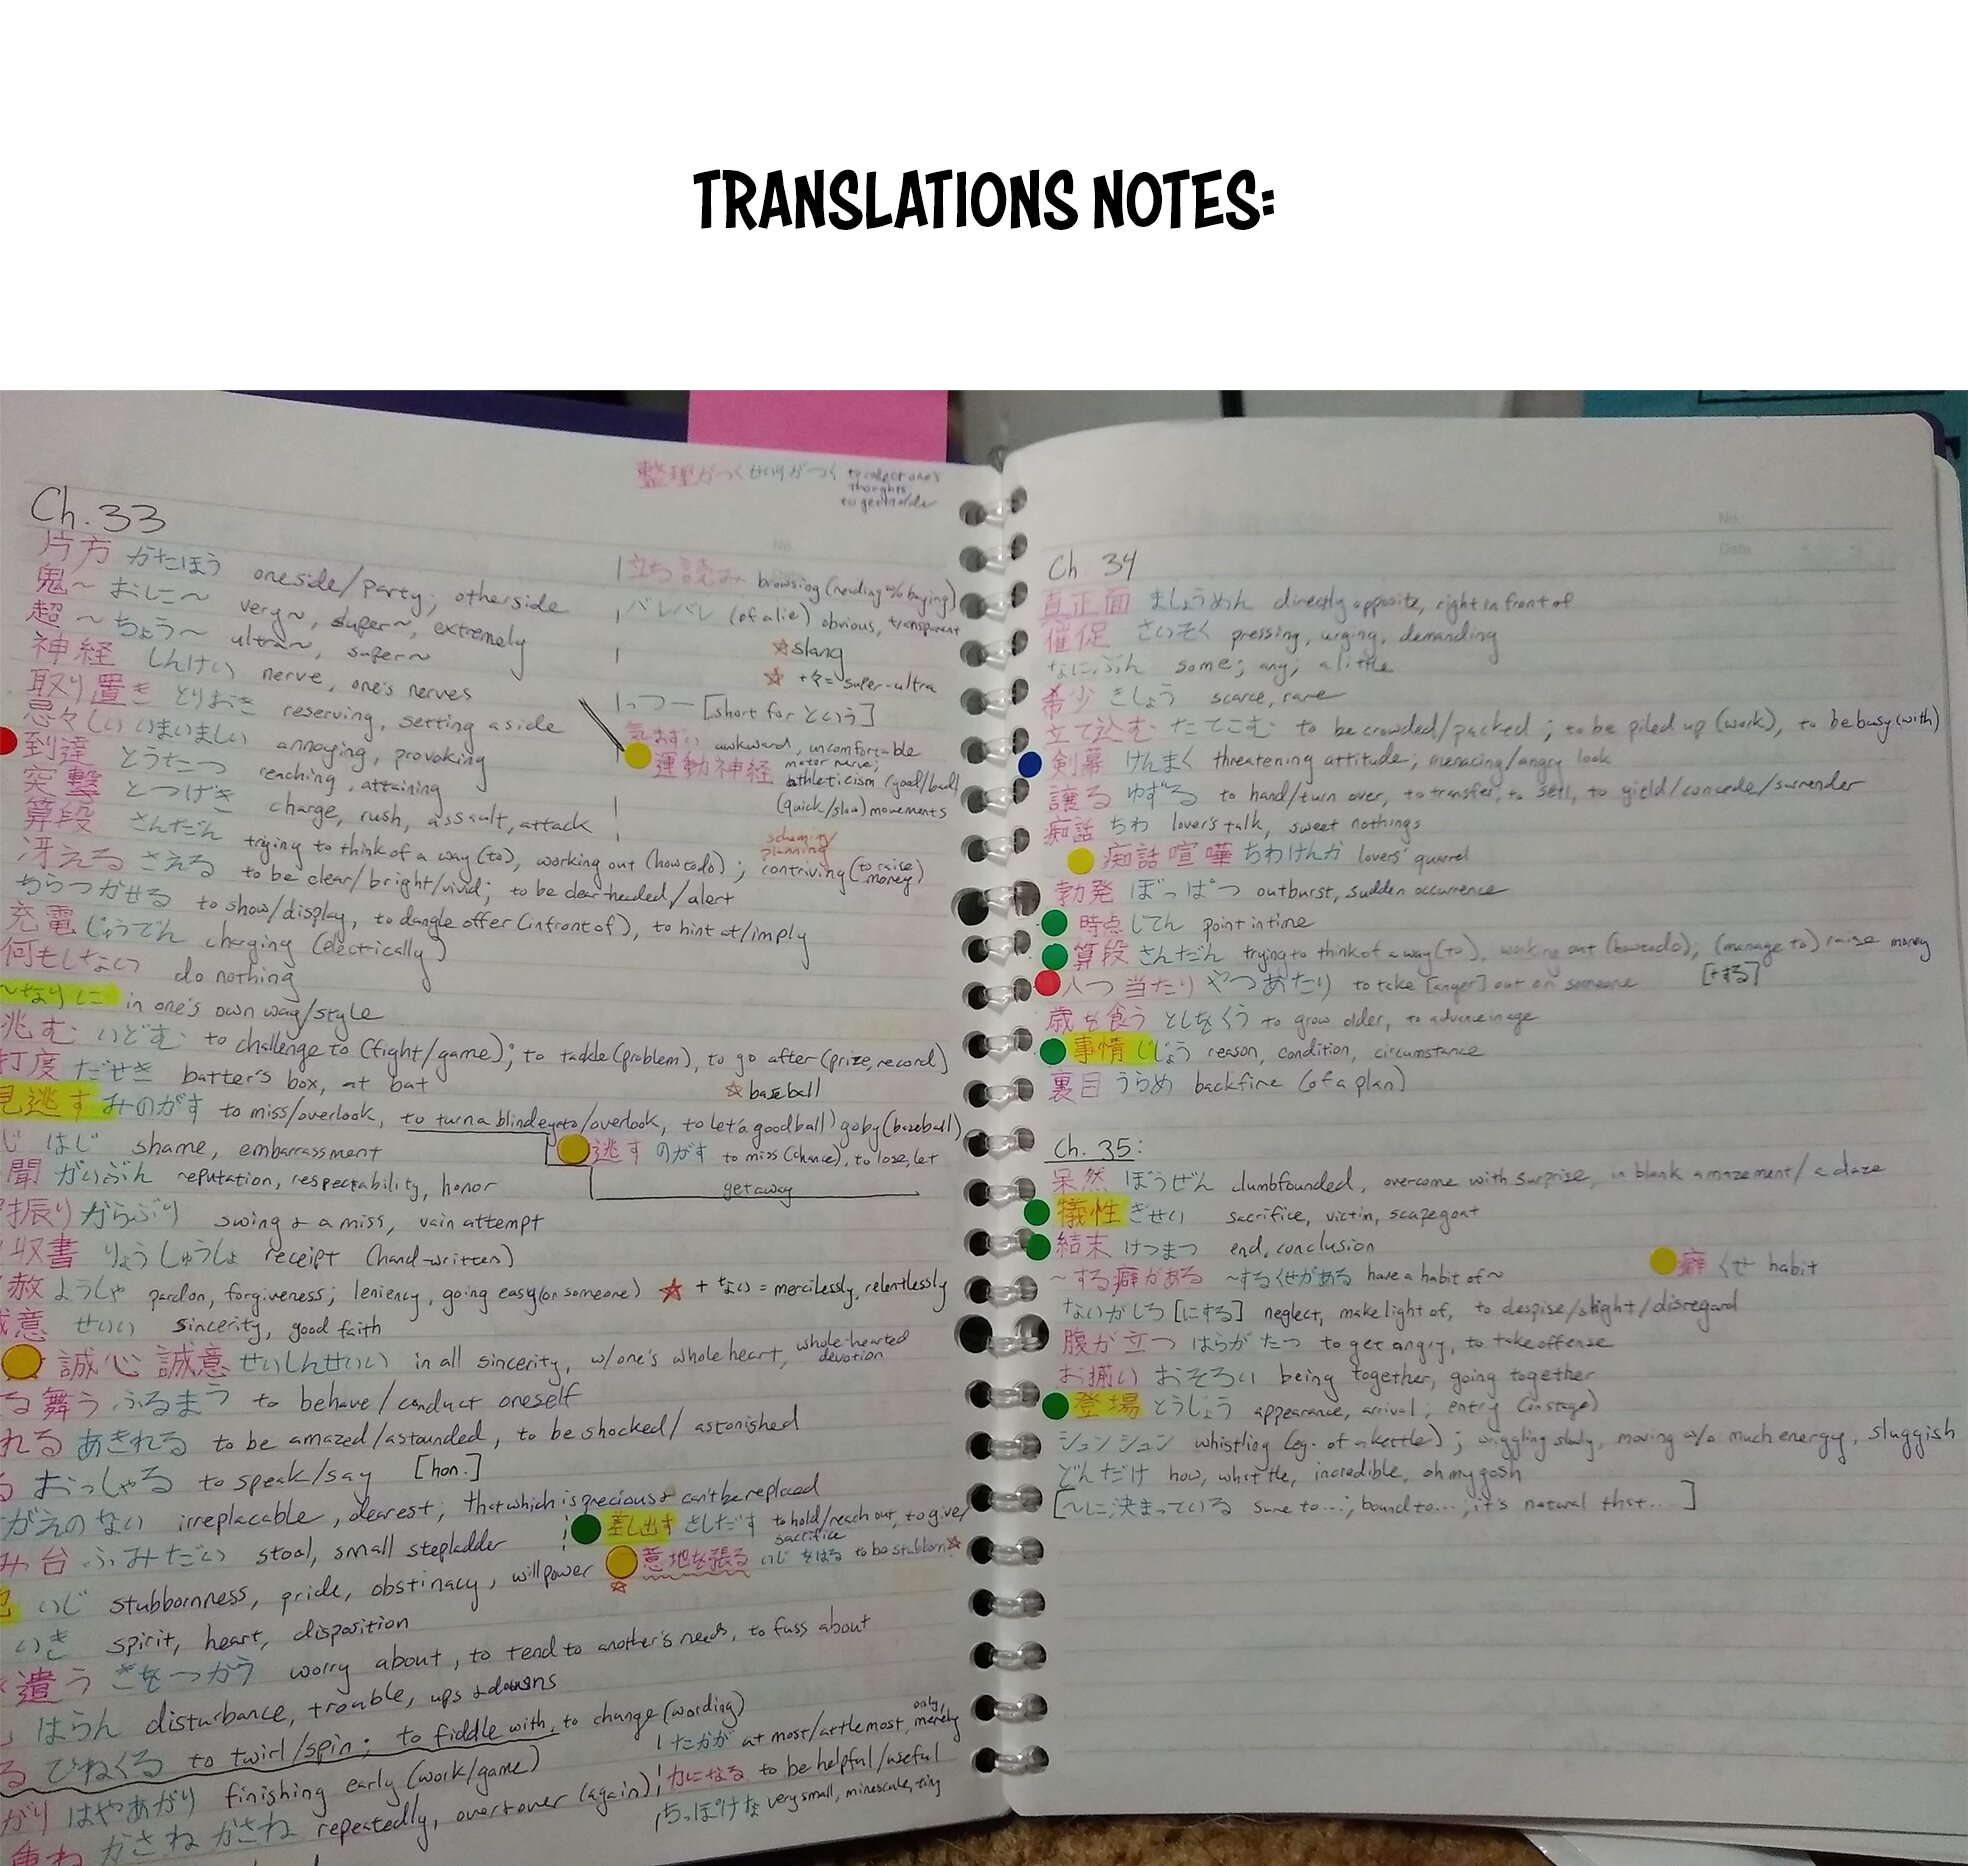 TRANSLATIONS NOTES:
整理がつく せいりがつく to collect one's thoughts,
Ch. 33
片方 かたほう one side/party; other side
鬼~ おに~ very~, super~, extremely
超~ ちょう~ ultra~, super~
神経 しんけい nerve, one's nerves
取り置き とりおき reserving, setting aside
忌々しい いまいましい annoying, provoking
到達 とうたつ reaching, attaining
突撃 とつげき charge, rush, assault, attack
算段 さんだん trying to think of a way (to), working out (how to do); contriving (to raise money)
scheming
planning
冴える さえる to be clear/bright/vivid; to be clear-headed/alert
ちらつかせる to show/display, to dangle offer (in front of), to hint at/imply
充電 じゅうでん charging (electrically)
何もしない do nothing
~なりに in one's own way/style
挑む いどむ to challenge to (fight/game); to tackle (problem), to go after (prize, record)
打席 だせき batter's box, at bat
☆baseball
見逃す みのがす to miss/overlook, to turn a blind eye to/overlook, to let (a good ball) go by (baseball)
逃す のがす to miss (chance), to lose, let get away
じ はじ shame, embarrassment
聞 がいぶん reputation, respectability, honor
振り からぶり swing & a miss, vain attempt
収書 りょうしゅうしょ receipt (hand-written)
赦 ようしゃ pardon, forgiveness; leniency, going easy (on someone) ☆ + ない = mercilessly, relentlessly
誠意 せいい sincerity, good faith
誠心誠意 せいしんせいい in all sincerity, w/one's whole heart, whole-hearted devotion
る舞う ふるまう to behave/conduct oneself
れる あきれる to be amazed/astounded, to be shocked/astonished
る おっしゃる to speak/say [hon.]
がえのない irreplacable, dearest, that which is precious & can't be replaced
差し出す さしだす to hold/reach out, to give/sacrifice
み台 ふみだい stool, small stepladder
いじ stubbornness, pride, obstinacy, willpower
意地を張る いじをはる to be stubborn ☆
いき spirit, heart, disposition
遣う きをつかう worry about, to tend to another's needs, to fuss about
はらん disturbance, trouble, ups & downs
る ひねくる to twirl/spin; to fiddle with, to change (wording)
がり はやあがり finishing early (work/game)
重ね かさねかさね repeatedly, over & over (again)
立ち読み browsing (reading w/o buying)
バレバレ (of a lie) obvious, transparent
☆slang
☆ +々= super-ultra
っつー [short for という]
気まずい awkward, uncomfortable
運動神経 motor nerve; athleticism (good/bad)
(quick/slow) movements
たかが at most/at tle most, only, merely
力になる to be helpful/useful
ちっぽけな very small, minescule, tiny
Ch. 34
真正面 ましょうめん directly opposite, right in front of
催促 さいそく pressing, urging, demanding
なにぶん some; any; a little
希少 きしょう scarce, rare
立て込む たてこむ to be crowded/packed; to be piled up (work), to be busy (with)
剣幕 けんまく threatening attitude; menacing/angry look
譲る ゆずる to hand/turn over, to transfer, to sell, to yield/concede/surrender
痴話 ちわ lover's talk, sweet nothings
痴話喧嘩 ちわけんか lovers' quarrel
勃発 ぼっぱつ outburst, sudden occurrence
時点 じてん point in time
算段 さんだん trying to think of a way (to), working out (how to do); (manage to) raise money
[+する]
八つ当たり やつあたり to take [anger] out on someone
歳を食う としをくう to grow older, to advance in age
事情 じじょう reason, condition, circumstance
裏目 うらめ backfire (of a plan)
Ch. 35:
呆然 ぼうぜん dumbfounded, overcome with surprise, in blank amazement/a daze
犠牲 ぎせい sacrifice, victim, scapegoat
結末 けつまつ end, conclusion
癖 くせ habit
~する癖がある ~するくせがある have a habit of~
ないがしろ [にする] neglect, make light of, to despise/slight/disregard
腹が立つ はらがたつ to get angry, to take offense
お揃い おそろい being together, going together
登場 とうじょう appearance, arrival; entry (on stage)
シュンシュン whistling (eg. of a kettle); wriggling slowly, moving w/o much energy, sluggish
どんだけ how, whattle, incredible, oh my gosh
[~に決まっている sure to...; bound to...; it's natural that...]